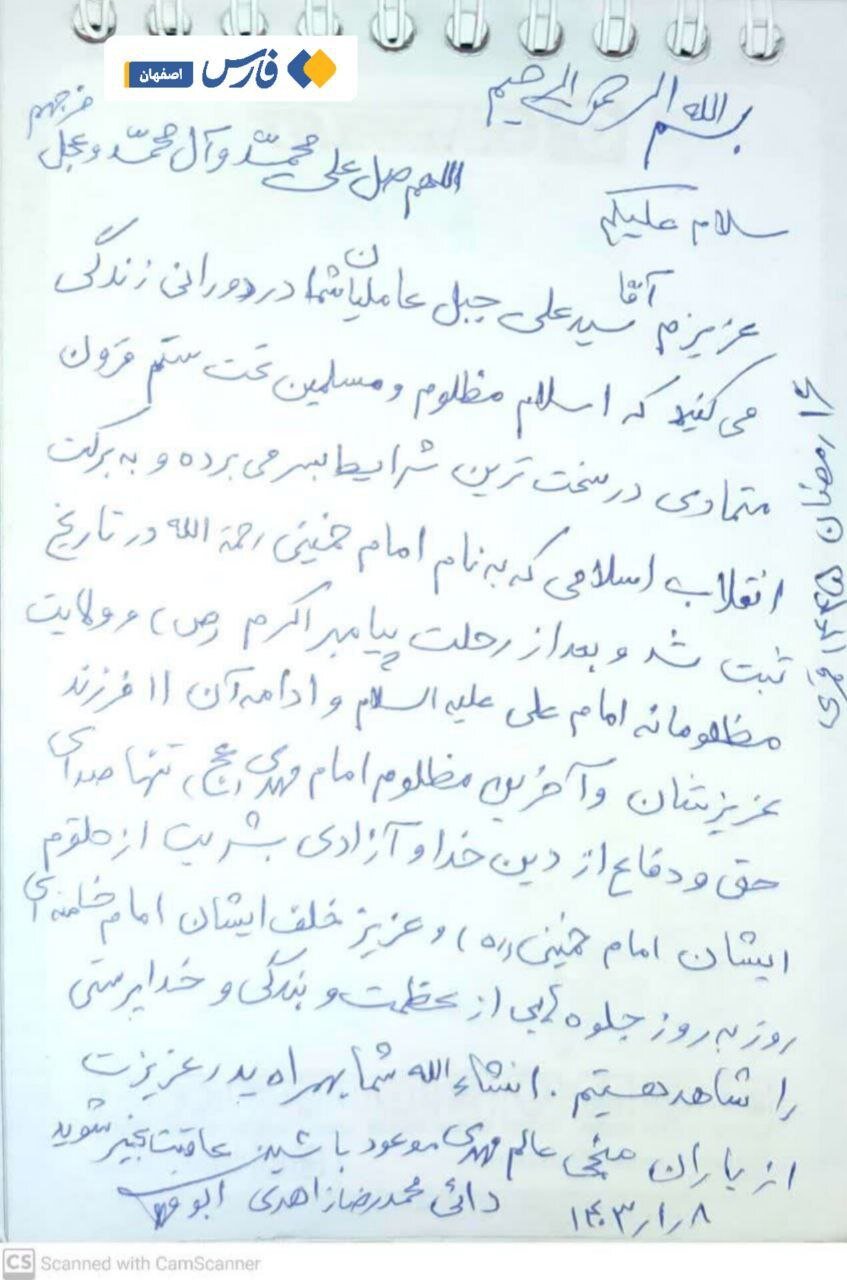 فارس
اصفهان
بسم الله الرحمن الرحیم
اللهم صل علی محمد و آل محمد و عجل فرجهم
سلام علیکم
عزیزم آقا سید علی جبل عاملیان شما در دورانی زندگی
می کنید که اسلام مظلوم و مسلمین تحت ستم قرون
متمادی در سخت ترین شرایط بسر می برده و به برکت
انقلاب اسلامی که به نام امام خمینی رحمة الله در تاریخ
ثبت شد و بعد از رحلت پیامبر اکرم (ص) و ولایت
مظلومانه امام علی علیه السلام و ادامه آن ۱۱ فرزند
عزیزشان و آخرین مظلوم امام مهدی (عج) تنها صدای
حق و دفاع از دین خدا و آزادی بشریت از حلقوم
ایشان امام خمینی (ره) و عزیز خلف ایشان امام خامنه ای
روز به روز جلوه هایی از عظمت و بندگی و خداپرستی
را شاهد هستیم . انشاء الله شما بهمراه پدر عزیزت
از یاران منجی عالم مهدی موعود باشین عاقبت بخیر شوید
دائی محمدرضا زاهدی ابو مهدی
۱۴۰۳/۱/۸
۱۶ رمضان ۱۴۴۵ قمری
CS Scanned with CamScanner